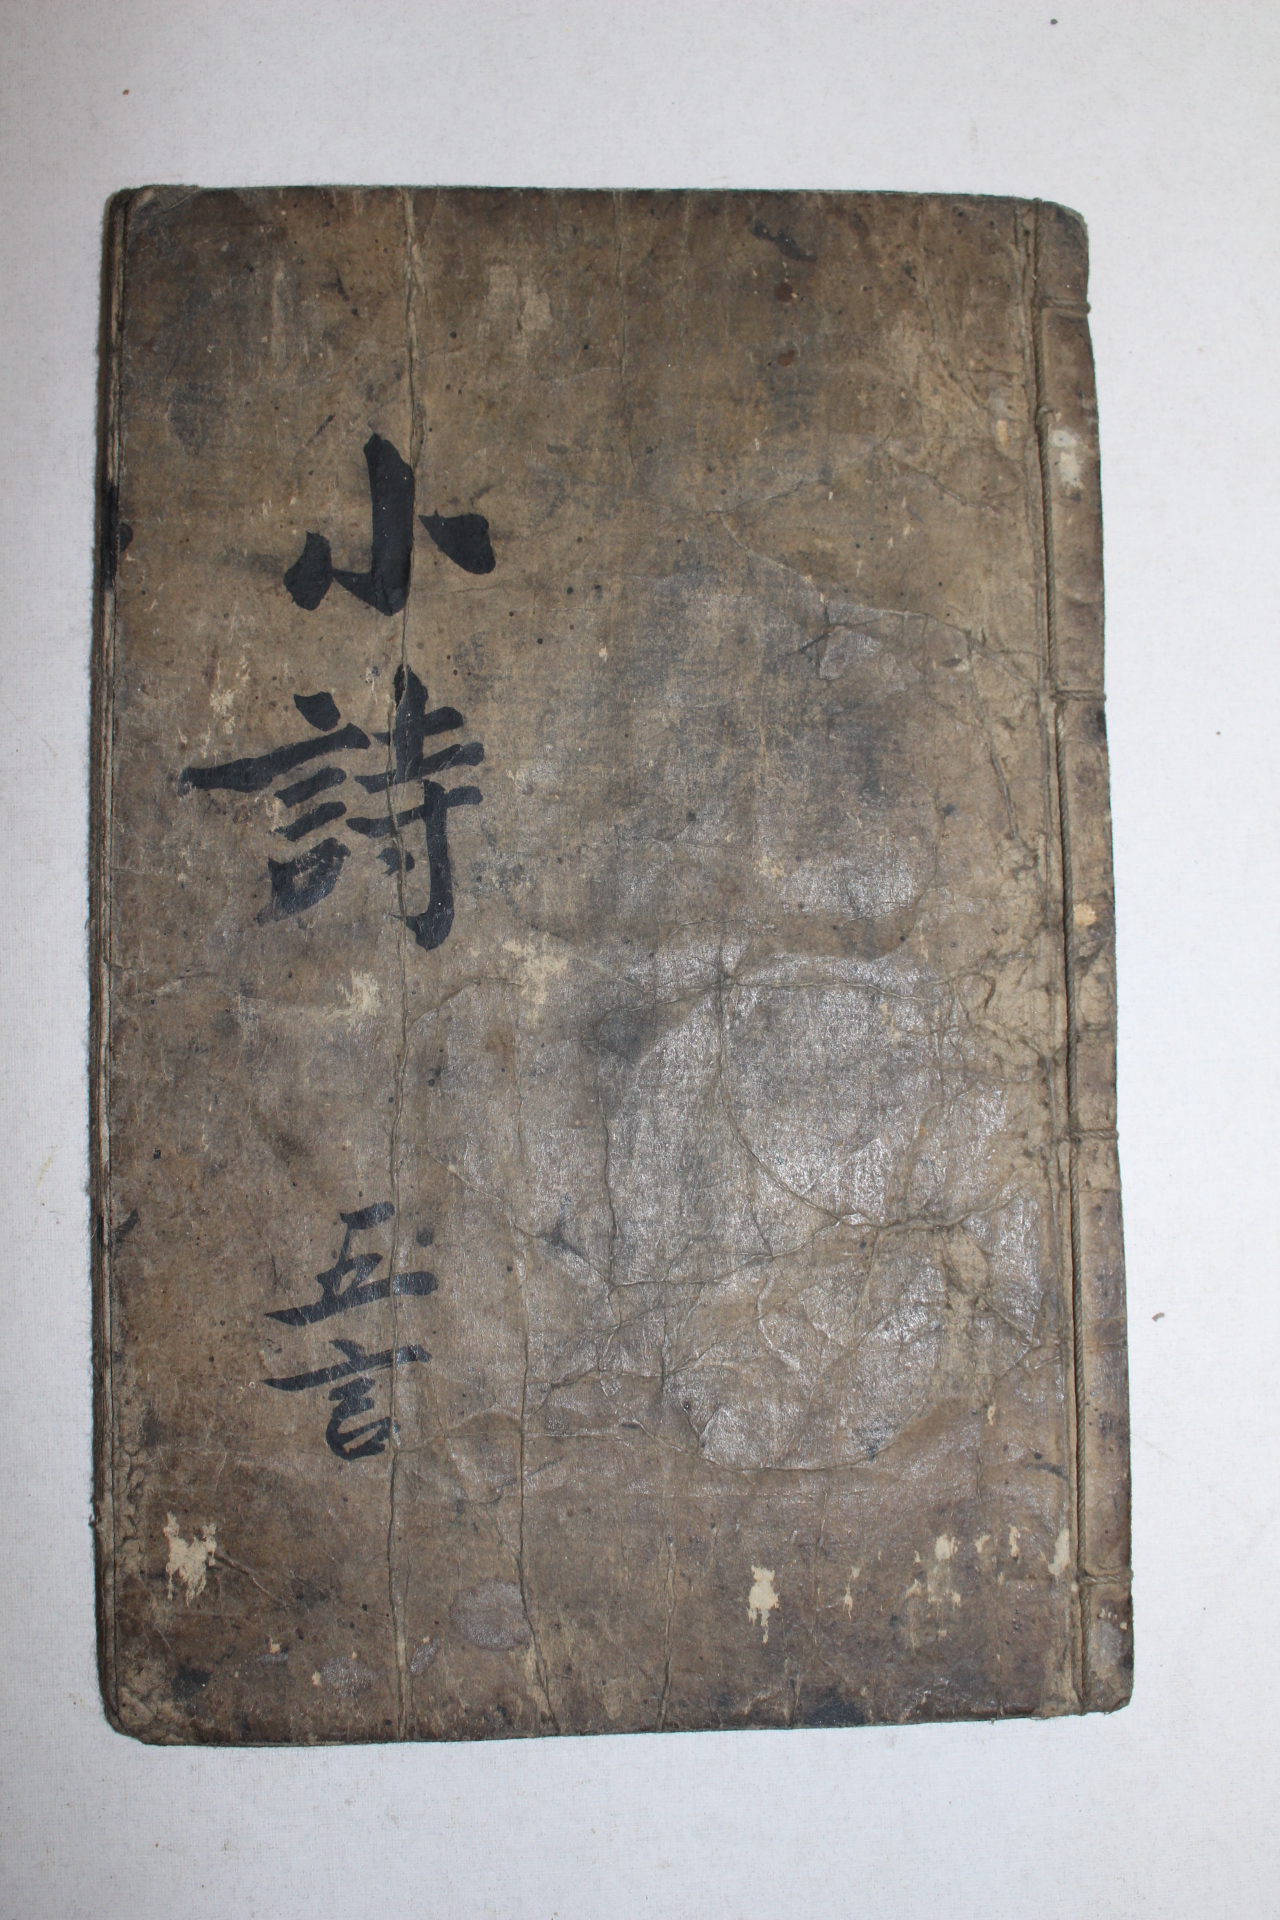 小詩 五言